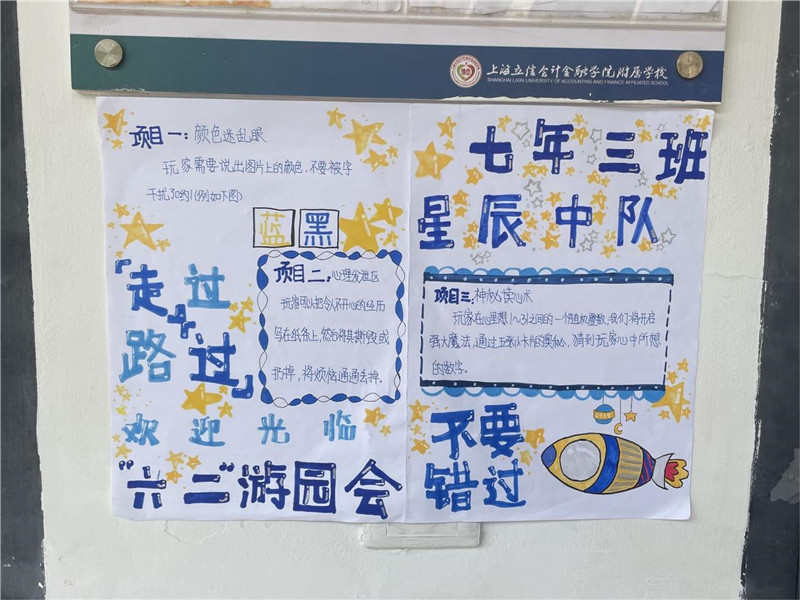 上海立信会计金融学院附属学校
SHANGHAI LIXIN UNIVERSITY OF ACCOUNTING AND FINANCE AFFILIATED SCHOOL
项目一：颜色迷乱眼
玩家需要说出图片上的颜色，不要被字
干扰了哟！(例如下图)
蓝 黑
「走过
路过」
项目二：心理发泄区
玩家可以把令人不开心的经历
写在纸条上，然后将其撕毁或
扔掉，将烦恼通通去掉。
欢迎光临
"六一"游园会
七年三班
星辰中队
项目三：神秘读心术
玩家在心里想1～31之间的一个随机整数，我们将开启
强大魔法，通过五张卡片的奥秘，猜到玩家心中所想
的数字。
不要
错过